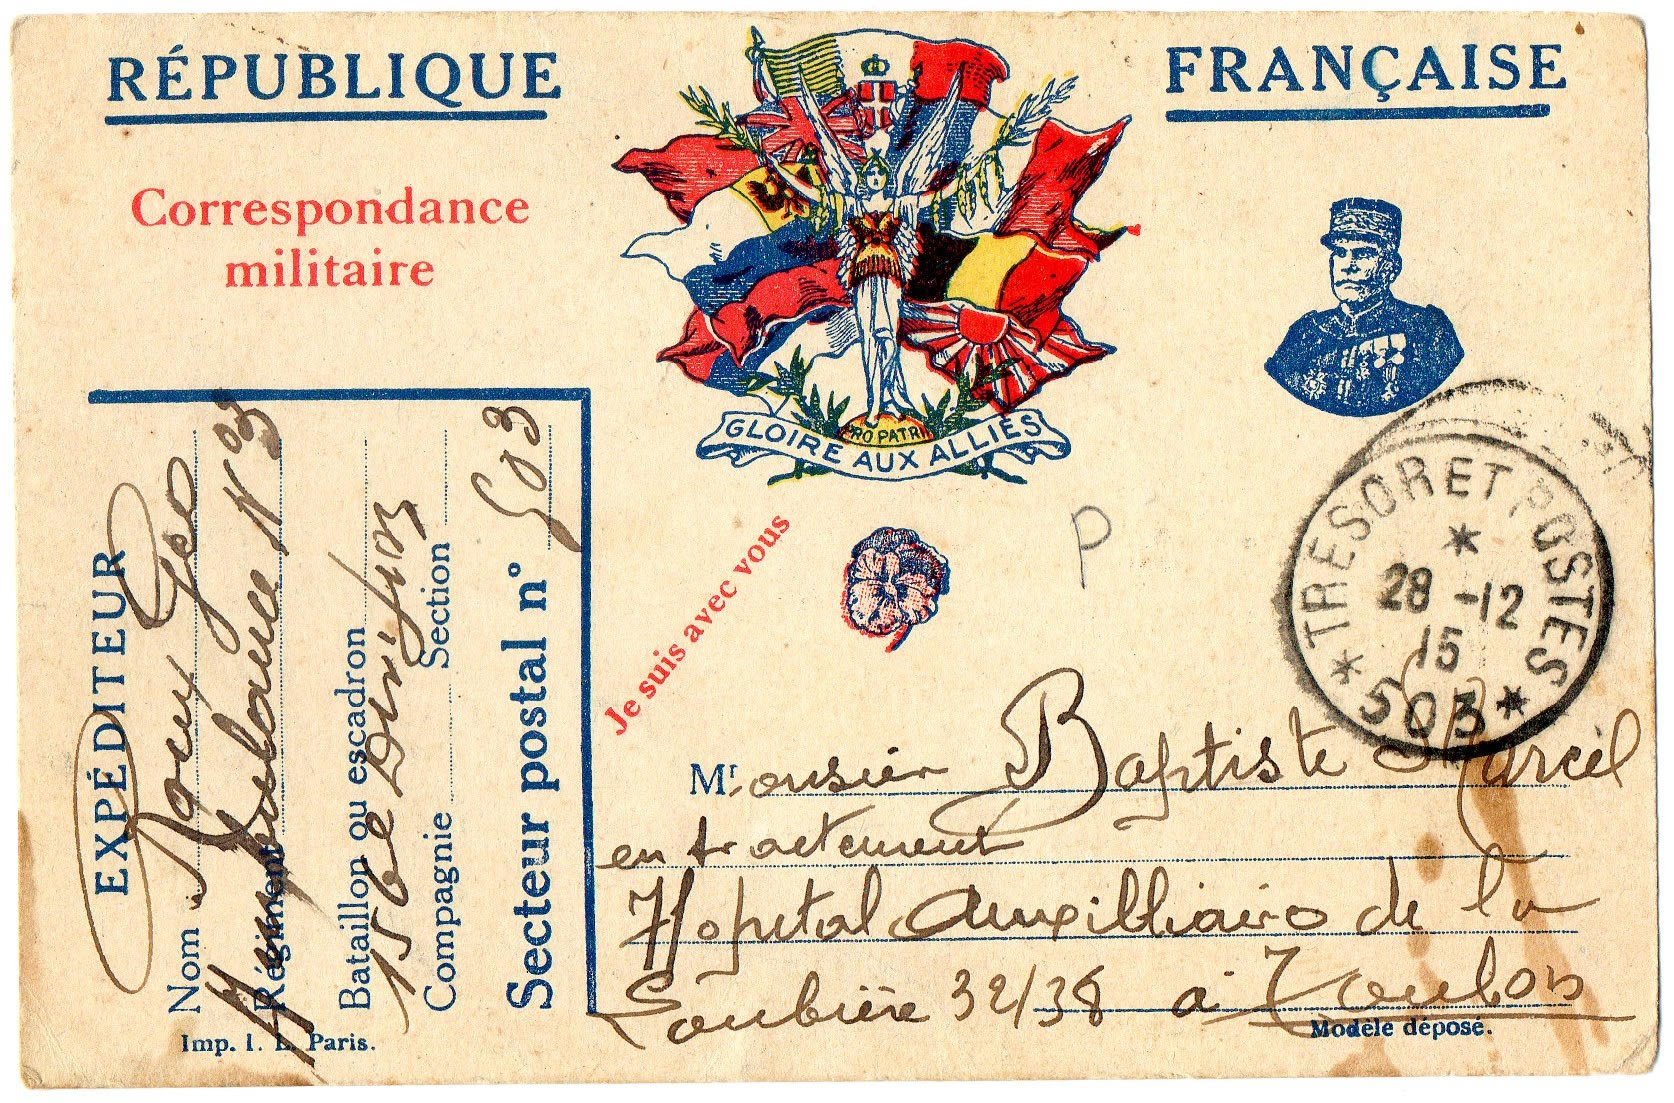 RÉPUBLIQUE FRANÇAISE
Correspondance
militaire
PRO PATRI
GLOIRE AUX ALLIÉS
Je suis avec vous
P
TRESOR ET POSTES
28 -12
15
503
EXPÉDITEUR
Nom Roux Geo
Régiment Ambulance N° 3
Bataillon ou escadron
156e Division
Compagnie Section
Secteur postal n° 503
Imp. I. L. Paris.
Mr. onsieur Baptiste Marcel
en traitement
Hopital Auxilliaire de la
Loubière 32/38 à Toulon
Modèle déposé.